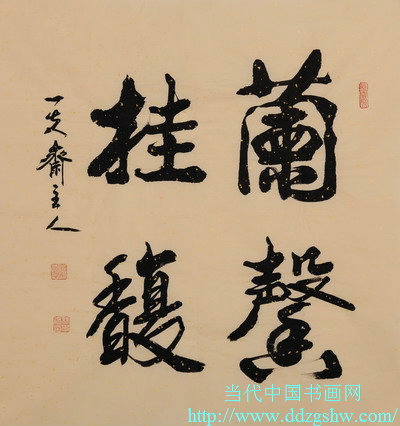 蘭馨
桂馥
一 齋主人
当代中国书画网
http://www.ddzgshw.com/